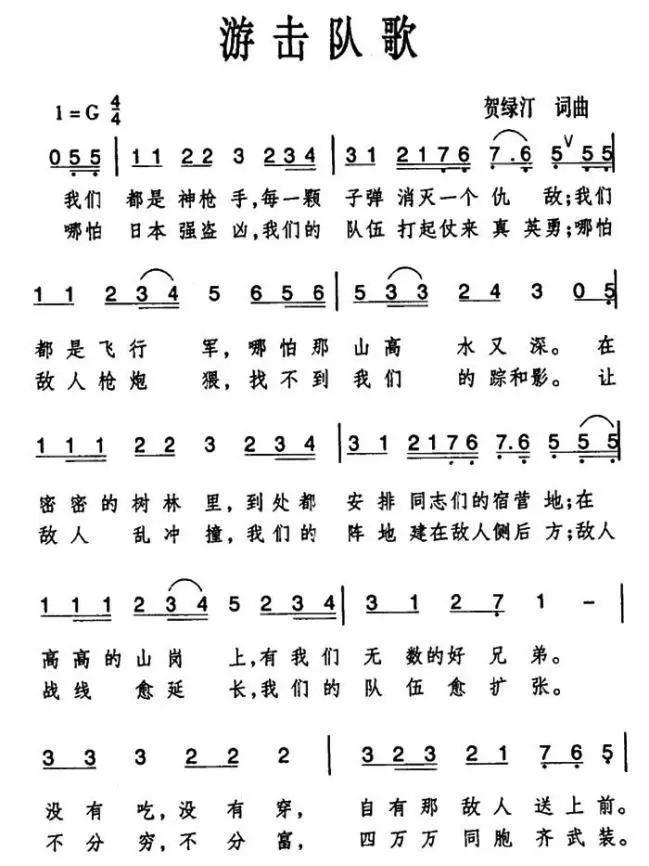 游击队歌
1=G 4/4 贺绿汀 词曲
0 5 5 | 1 1 2 2 3 2 3 4 | 3 1 2 1 7 6 7 . 6 5 V 5 5 |
我们 都是神枪手,每一颗 子弹消灭一个仇敌;我们
哪怕 日本强盗凶,我们的 队伍打起仗来真英勇;哪怕
1 1 2 3 4 5 6 5 6 | 5 3 3 2 4 3 0 5 |
都是飞行军,哪怕那山高水又深。在
敌人枪炮猥,找不到我们的踪和影。让
1 1 1 2 2 3 2 3 4 | 3 1 2 1 7 6 7 . 6 5 5 5 |
密密的树林里,到处都安排同志们的宿营地;在
敌人乱冲撞,我们的阵地建在敌人侧后方;敌人
1 1 1 2 3 4 5 2 3 4 | 3 1 2 7 1 – |
高高的山岗上,有我们无数的好兄弟。
战线愈延长,我们的队伍愈扩张。
3 3 3 2 2 2 | 3 2 3 2 1 7 6 5 |
没有吃,没有穿,自有那敌人送上前。
不分穷,不分富,四万万同胞齐武装。